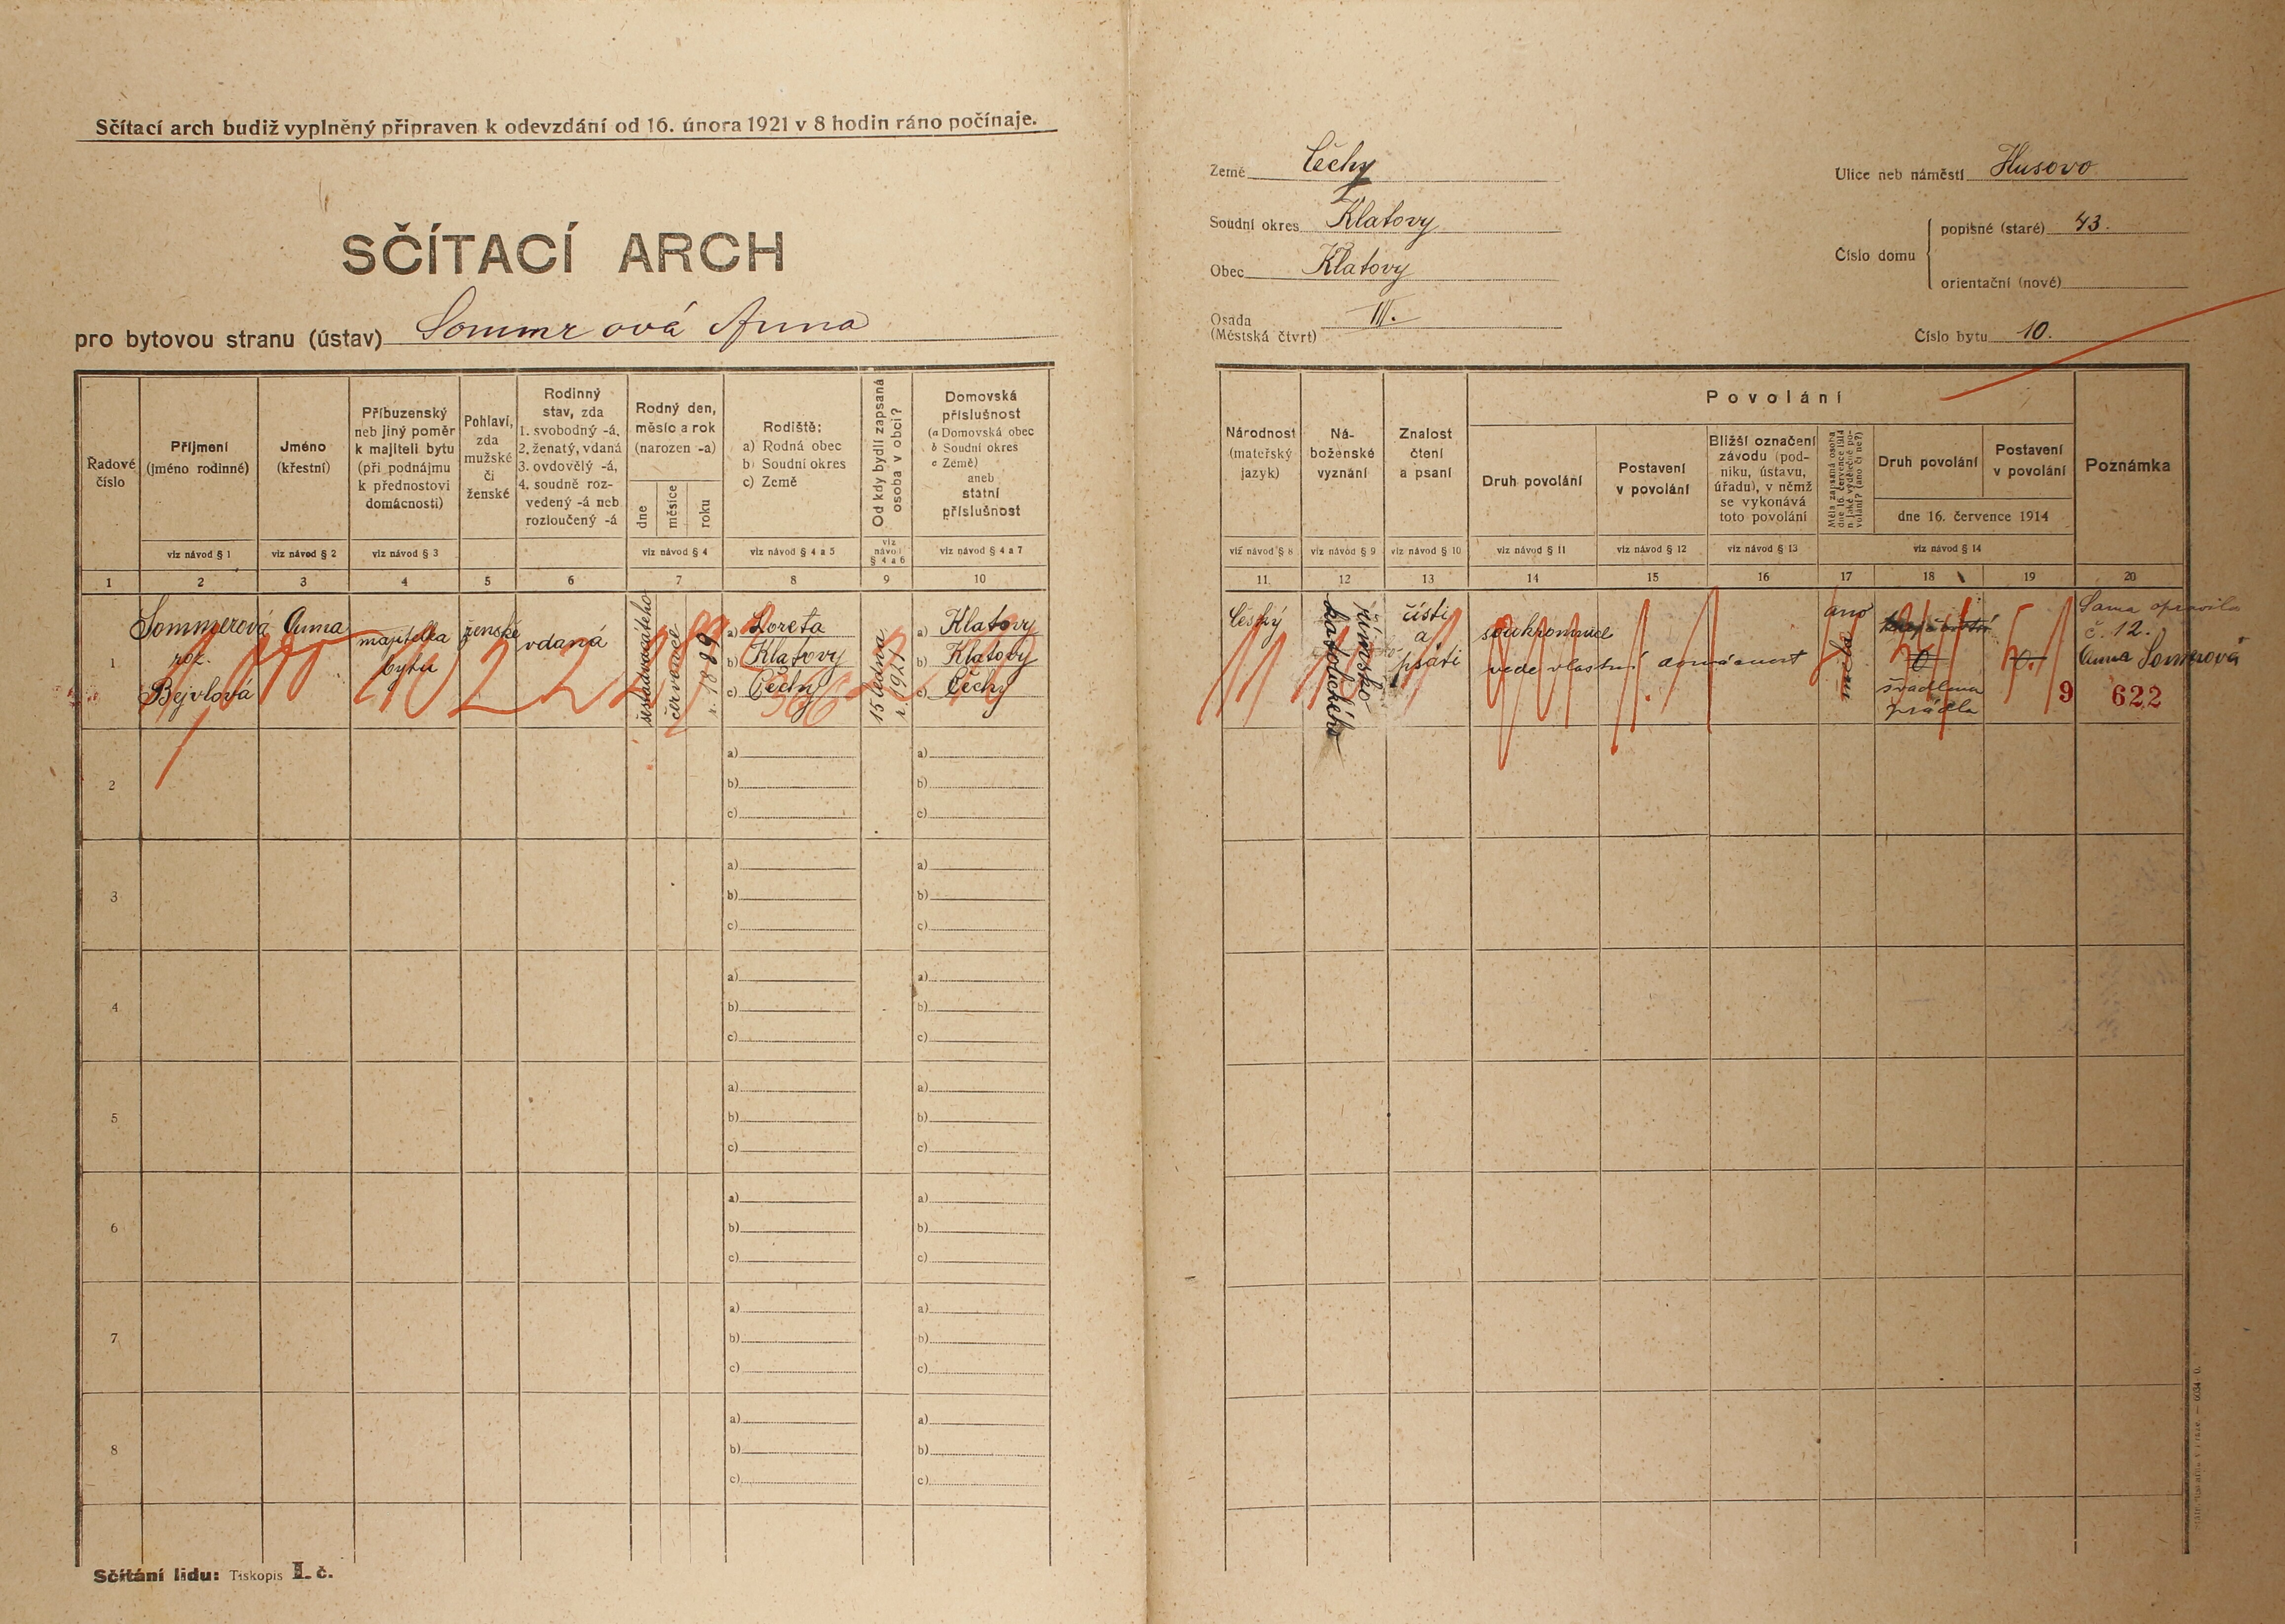 Sčítací arch budiž vyplněný připraven k odevzdání od 16. února 1921 v 8 hodin ráno počínaje.
SČÍTACÍ ARCH
pro bytovou stranu (ústav) Sommrová Anna
Země Čechy
Soudní okres Klatovy
Obec Klatovy
Osada
(Městská čtvrt) III.
Ulice neb náměstí Husovo
Číslo domu
popisné (staré) 43.
orientační (nové)
Číslo bytu 10.
Řadové
číslo
1
Příjmení
(jméno rodinné)
viz návod § 1
2
Jméno
(křestní)
viz návod § 2
3
Příbuzenský
neb jiný poměr
k majiteli bytu
(při podnájmu
k přednostovi
domácnosti)
viz návod § 3
4
Pohlaví,
zda
mužské
či
ženské
5
Rodinný
stav, zda
1. svobodný -á,
2. ženatý, vdaná
3. ovdovělý -á,
4. soudně roz-
vedený -á neb
rozloučený -á
6
Rodný den,
měsíc a rok
(narozen -a)
dne
měsíce
roku
viz návod § 4
7
Rodiště:
a) Rodná obec
b) Soudní okres
c) Země
viz návod § 4 a 5
8
Od kdy bydlí zapsaná
osoba v obci?
viz
návod
§ 4 a 6
9
Domovská
příslušnost
(a Domovská obec
b Soudní okres
c Země)
aneb
státní
příslušnost
viz návod § 4 a 7
10
Národnost
(mateřský
jazyk)
viz návod § 8
11
Ná-
boženské
vyznání
viz návod § 9
12
Znalost
čtení
a psaní
viz návod § 10
13
Povolání
Druh povolání
viz návod § 11
14
Postavení
v povolání
viz návod § 12
15
Bližší označení
závodu (pod-
niku, ústavu,
úřadu), v němž
se vykonává
toto povolání
viz návod § 13
16
Měla zapsaná osoba
dne 16. července 1914
n. jaké výdělečné po-
volání? (ano či ne?)
17
Druh povolání
18
Postavení
v povolání
19
dne 16. července 1914
viz návod § 14
Poznámka
20
1
Sommerová
roz.
Bejvlová
Anna
majitelka
bytu
ženské
vdaná
šestadvacátého
července
r. 1889
a) Loreta
b) Klatovy
c) Čechy
15 ledna
r. 1911
a) Klatovy
b) Klatovy
c) Čechy
český
římsko
katolického
čísti
a
psáti
soukromnice
vede vlastní domácnost
ano
měla
0
švadlena
prádla
0.
Sama opravila
č. 12.
Anna Sommrová
9 622
2
a)
b)
c)
a)
b)
c)
3
a)
b)
c)
a)
b)
c)
4
a)
b)
c)
a)
b)
c)
5
a)
b)
c)
a)
b)
c)
6
a)
b)
c)
a)
b)
c)
7
a)
b)
c)
a)
b)
c)
8
a)
b)
c)
a)
b)
c)
Sčítání lidu: Tiskopis I. č.